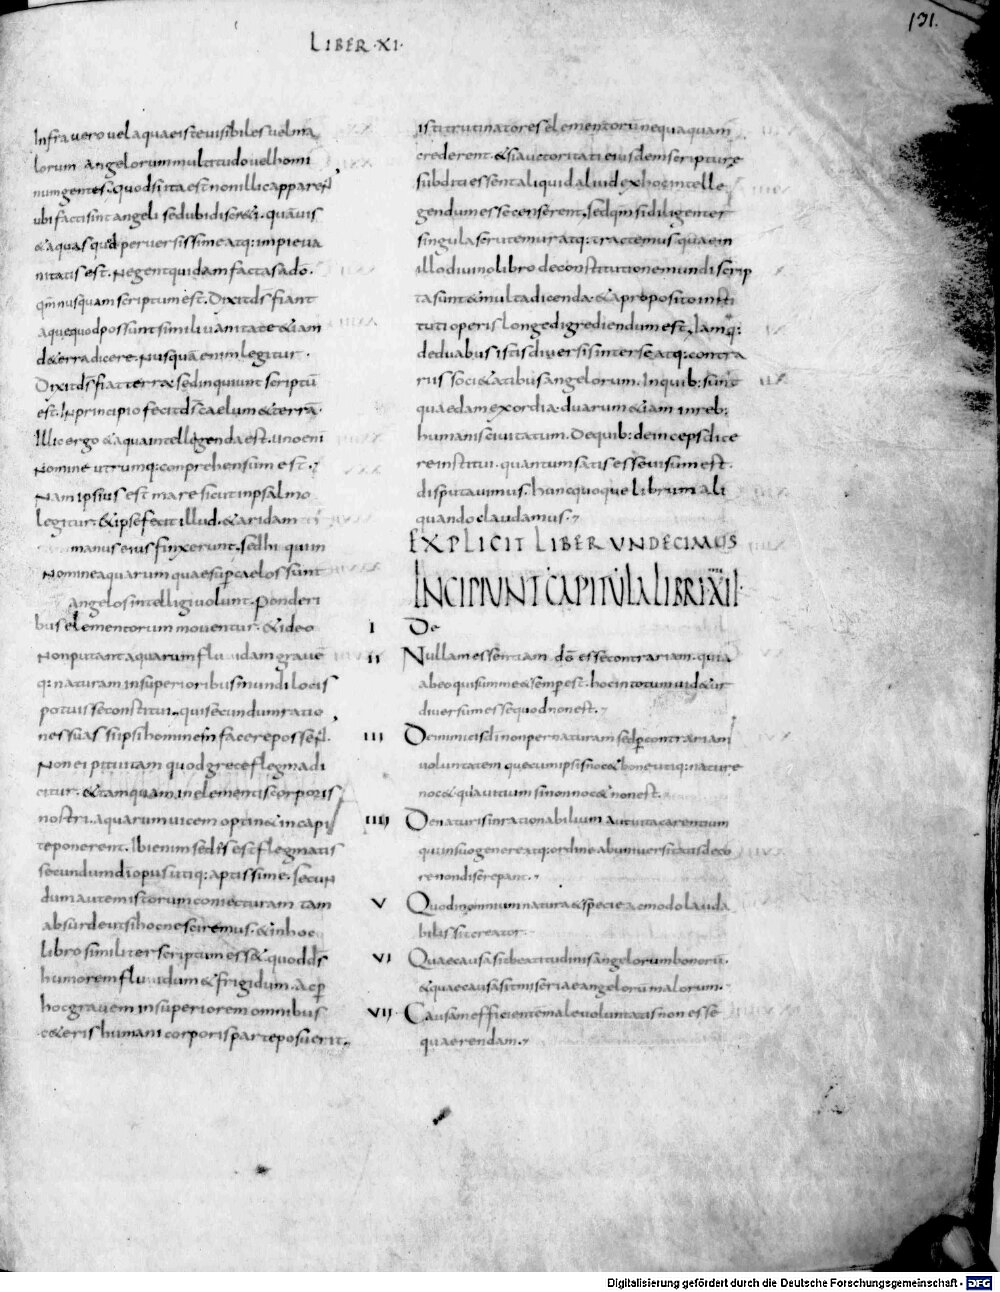 LIBER·XI·
131.
Infra vero vel aquae iste visibiles vel ma
lorum angelorum multitudo vel homi
num gentes. quod si ita est non illic apparet
ubi facti sint angeli sed ubi discreti. quāvis
& aquas quod perversissime atq: impie va
nitatis est. Negent quidam factas a do.
qm̄ nusquam scriptum est. Dixit ds̄ fiant
aque quod possunt simili vanitate & iam
de terra dicere. Nusquā enim legitur.
Dixit ds̄ fiat terra sed inquiunt scriptū
est. In principio fecit ds̄ caelum & terrā.
Illic ergo & aqua intellegenda est. uno enī
Nomine utrumq: conprehensum est.
Nam ipsius est mare sicut in psalmo
legitur. & ipse fecit illud. & aridam
manus eius finxerunt. sed hi qui in
Nomine aquarum quae sup caelos sunt
angelos intelligi volunt. Ponderi
bus elementorum moventur. & ideo
Non putant aquarum fluidam gravē
q: naturam in superioribus mundi locis
potuisse constitui. qui secundum ratio
nes suas si ipsi hominem facere possent.
Non ei pituitam quod grece flegma di
citur. & tamquam in elementis corporis
nostri. aquarum vicem optin& in capi
te ponerent. Ibi enim sedes est flegmatis
secundum dī opus utiq: aptissime. Secun
dum autem istorum coniecturam tam
absurde ut si hoc nesciremus. & in hoc
libro similiter scriptum ess&. quod ds̄
humorem fluidum & frigidum. ac p
hoc gravem in superiorem omnibus
ceteris humani corporis parte posuerit.
isti trutinatores elementorū nequaquam
crederent. & si auctoritati eiusdem scripture
subditi essent aliquid aliud ex hoc intelle
gendum esse censerent. sed qm̄ si diligenter
singula scrutemur atq: tractemus. quae in
illo divino libro de constitutione mundi scrip
ta sunt & multa dicenda. & a proposito insti
tuti operis longe digrediendum est. Iamq:
de duabus istis diversis inter se atq: contra
riis societatibus angelorum. In quib: sunt
quaedam exordia duarum & iam in reb:
humanis civitatum. De quib: deinceps dice
re institui. quantum satis esse visum est.
disputavimus. hunc quoque librum ali
quando claudamus.
EXPLICIT LIBER UNDECIMUS
INCIPIUNT CAPITULA LIBRI XII
I De
II Nullam essentiam do esse contrariam. quia
ab eo qui summe & semp est. hoc in totum vid&ur
diversum esse quod non est.
III De inimicis dī non per naturam sed p contrariam
voluntatem que cum ipsis noc& bone utiq: nature
noc& quia vitium si non noc& non est.
IIII De naturis inrationabilium aut vita carentium
qui in suo genere atq: ordine ab universitatis deco
re non discrepant.
V Quod in omnium natura & specie ac modo lauda
bilis sit creator.
VI Quae causa sit beatitudinis angelorum bonorū.
& quae causa sit miseriae angelorū malorum.
VII· Causam efficientem male voluntatis non esse
quaerendam.
Digitalisierung gefördert durch die Deutsche Forschungsgemeinschaft - DFG